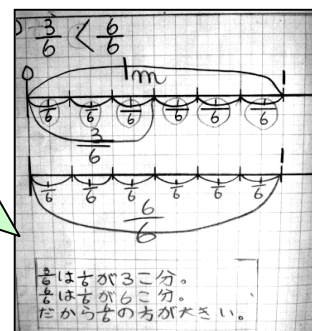 3/6 < 6/6
1m
0 1
1/6 1/6 1/6 1/6 1/6 1/6
3/6
1
1/6 1/6 1/6 1/6 1/6 1/6
6/6
3/6は1/6が3こ分。
6/6は1/6が6こ分。
だから6/6の方が大きい。